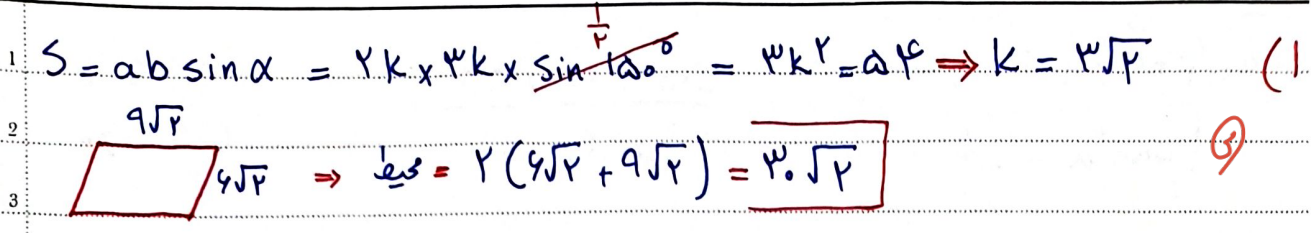 1 S = ab sinα = ۲k × ۳k × sin ۱۵۰° ۱/۲ = ۳k^۲ = ۵۴ ⇒ k = ۳√۲ (۱
2 ۹√۲
۶√۲ ⇒ محیط = ۲(۶√۲ + ۹√۲) = ۳۰√۲
3